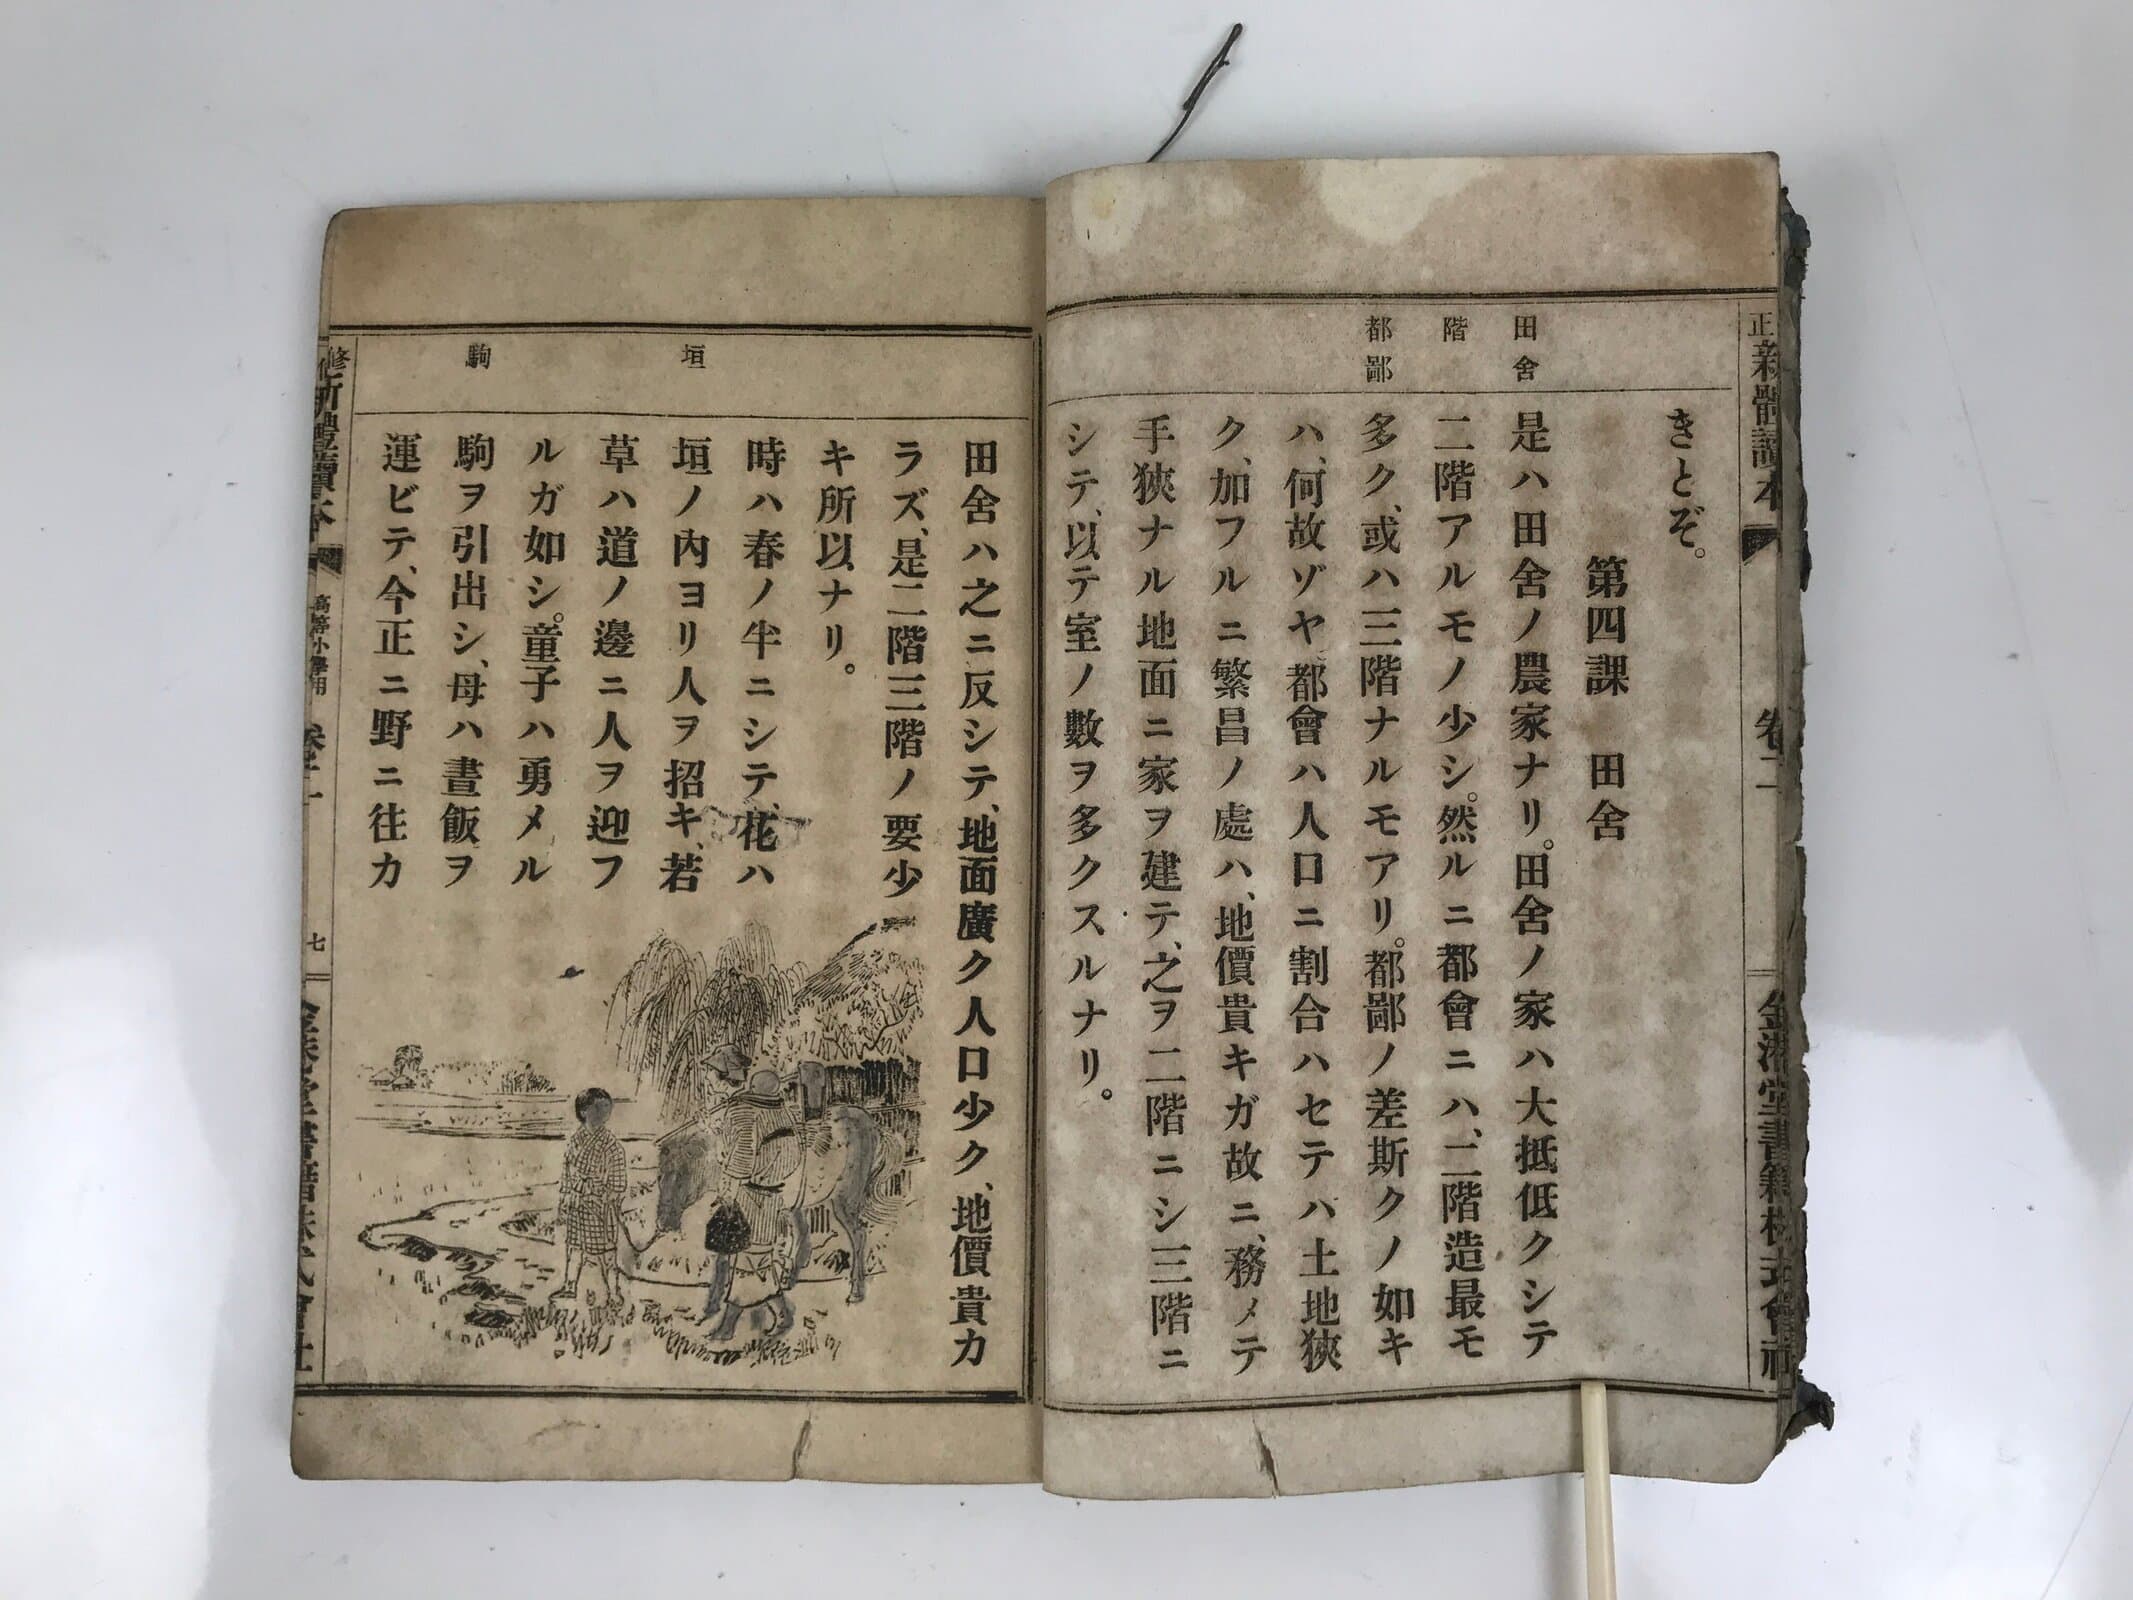 正新體讀本
卷二
金港堂書籍株式會社
田舍
階
都鄙
きとぞ。
第四課 田舍
是ハ田舍ノ農家ナリ。田舍ノ家ハ大抵低クシテ
二階アルモノ少シ。然ルニ都會ニハ、二階造最モ
多ク、或ハ三階ナルモアリ。都鄙ノ差斯クノ如キ
ハ、何故ゾヤ、都會ハ人口ニ割合ハセテハ土地狹
ク、加フルニ繁昌ノ處ハ、地價貴キガ故ニ、務メテ
手狹ナル地面ニ家ヲ建テ、之ヲ二階ニシ三階ニ
シテ、以テ室ノ數ヲ多クスルナリ。
垣
駒
田舍ハ之ニ反シテ、地面廣ク人口少ク、地價貴カ
ラズ、是二階三階ノ要少
キ所以ナリ。
時ハ春ノ半ニシテ、花ハ
垣ノ內ヨリ人ヲ招キ、若
草ハ道ノ邊ニ人ヲ迎フ
ルガ如シ。童子ハ勇メル
駒ヲ引出シ、母ハ晝飯ヲ
運ビテ、今正ニ野ニ往カ
修
新體讀本
高等小學用
七